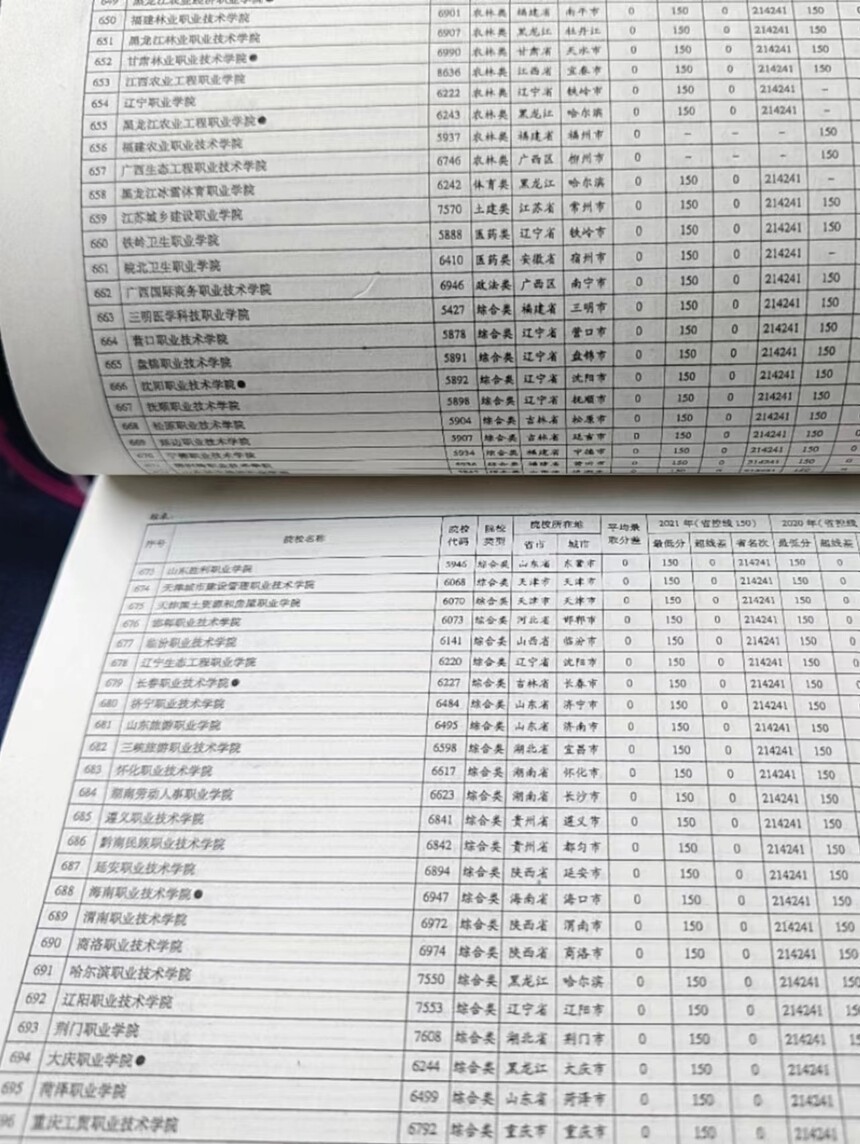 649 黑龙江农业经济职业学院●
650 福建林业职业技术学院 6901 农林类 福建省 南平市 0 150 0 214241 150 0
651 黑龙江林业职业技术学院 6907 农林类 黑龙江 牡丹江 0 150 0 214241 150
652 甘肃林业职业技术学院● 6990 农林类 甘肃省 天水市 0 150 0 214241 150
653 江西农业工程职业学院 8636 农林类 江西省 宜春市 0 150 0 214241 150
654 辽宁职业学院 6222 农林类 辽宁省 铁岭市 0 150 0 214241 –
655 黑龙江农业工程职业学院● 6243 农林类 黑龙江 哈尔滨 0 150 0 214241 –
656 福建农业职业技术学院 5937 农林类 福建省 福州市 0 – – – 150
657 广西生态工程职业技术学院 6746 农林类 广西区 柳州市 0 – – – 150
658 黑龙江冰雪体育职业学院 6242 体育类 黑龙江 哈尔滨 0 150 0 214241 –
659 江苏城乡建设职业学院 7570 土建类 江苏省 常州市 0 150 0 214241 150
660 铁岭卫生职业学院 5888 医药类 辽宁省 铁岭市 0 150 0 214241 150
661 皖北卫生职业学院 6410 医药类 安徽省 宿州市 0 150 0 214241 –
662 广西国际商务职业技术学院 6946 政法类 广西区 南宁市 0 150 0 214241 150
663 三明医学科技职业学院 5427 综合类 福建省 三明市 0 150 0 214241 150
664 营口职业技术学院 5878 综合类 辽宁省 营口市 0 150 0 214241 150
665 盘锦职业技术学院 5891 综合类 辽宁省 盘锦市 0 150 0 214241 150
666 沈阳职业技术学院● 5892 综合类 辽宁省 沈阳市 0 150 0 214241 150
667 抚顺职业技术学院 5898 综合类 辽宁省 抚顺市 0 150 0 214241 150
668 松原职业技术学院 5904 综合类 吉林省 松原市 0 150 0 214241 150
669 延边职业技术学院 5907 综合类 吉林省 延吉市 0 150 0 214241 150 0
670 宁德职业技术学院 5934 综合类 福建省 宁德市 0 150 0 214241 150 0
续表:
序号 院校名称 院校代码 院校类型 院校所在地 平均录取分差 2021 年(省控线 150) 2020 年(省控线
省市 城市 最低分 超线差 省名次 最低分 超线差
673 山东胜利职业学院 5946 综合类 山东省 东营市 0 150 0 214241 150 0
674 天津城市建设管理职业技术学院 6068 综合类 天津市 天津市 0 150 0 214241 150 0
675 天津国土资源和房屋职业学院 6070 综合类 天津市 天津市 0 150 0 214241 150 0
676 邯郸职业技术学院 6073 综合类 河北省 邯郸市 0 150 0 214241 150 0
677 临汾职业技术学院 6141 综合类 山西省 临汾市 0 150 0 214241 150 0
678 辽宁生态工程职业学院 6220 综合类 辽宁省 沈阳市 0 150 0 214241 150 0
679 长春职业技术学院● 6227 综合类 吉林省 长春市 0 150 0 214241 150 0
680 济宁职业技术学院 6484 综合类 山东省 济宁市 0 150 0 214241 150
681 山东旅游职业学院 6495 综合类 山东省 济南市 0 150 0 214241 150
682 三峡旅游职业技术学院 6598 综合类 湖北省 宜昌市 0 150 0 214241 150
683 怀化职业技术学院 6617 综合类 湖南省 怀化市 0 150 0 214241 150
684 湖南劳动人事职业学院 6623 综合类 湖南省 长沙市 0 150 0 214241 150
685 遵义职业技术学院 6841 综合类 贵州省 遵义市 0 150 0 214241 150
686 黔南民族职业技术学院 6842 综合类 贵州省 都匀市 0 150 0 214241 150
687 延安职业技术学院 6894 综合类 陕西省 延安市 0 150 0 214241 150
688 海南职业技术学院● 6947 综合类 海南省 海口市 0 150 0 214241 150
689 渭南职业技术学院 6972 综合类 陕西省 渭南市 0 150 0 214241 150
690 商洛职业技术学院 6974 综合类 陕西省 商洛市 0 150 0 214241 150
691 哈尔滨职业技术学院 7550 综合类 黑龙江 哈尔滨 0 150 0 214241
692 辽阳职业技术学院 7553 综合类 辽宁省 辽阳市 0 150 0 214241
693 荆门职业学院 7608 综合类 湖北省 荆门市 0 150 0 214241
694 大庆职业学院● 6244 综合类 黑龙江 大庆市 0 150 0 214241
695 菏泽职业学院 6499 综合类 山东省 菏泽市 0 150 0 214241
696 重庆工贸职业技术学院 6792 综合类 重庆市 重庆市 0 150 0 214241